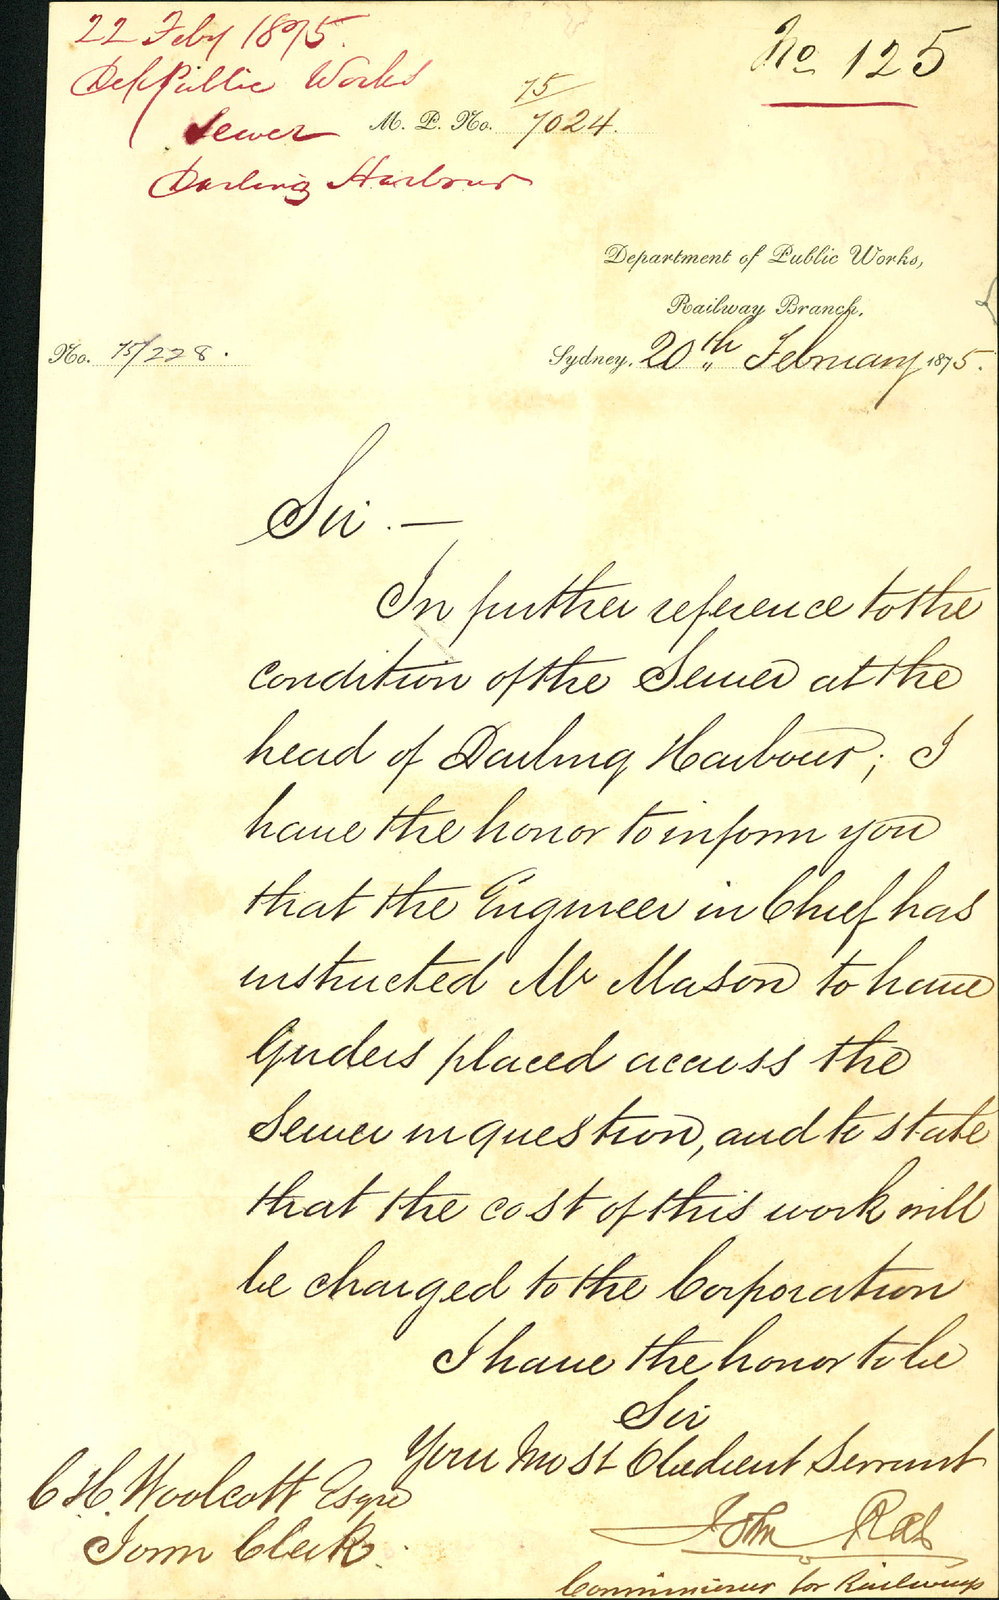 22 Feby 1875.
No 125
Dep Public Works
Sewer
Darling Harbour
M. P. No. 75/7024.
Department of Public Works,
Railway Branch,
No. 75/228.
Sydney, 20th February 1875.
Sir. —
In further reference to the
condition of the Sewer at the
head of Darling Harbour; I
have the honor to inform you
that the Engineer in Chief has
instructed Mr Mason to have
Girders placed across the
Sewer in question, and to state
that the cost of this work will
be charged to the Corporation
I have the honor to be
Sir
Your Most Obedient Servant
John Rae
Commissioner for Railways
C H. Woolcott Esqre
Town Clerk.